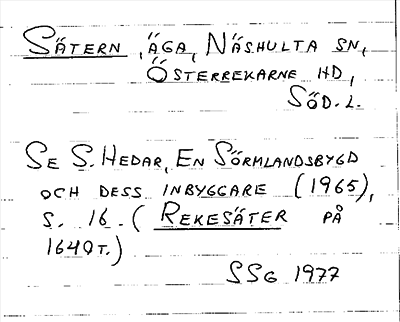 SÄTERN, ÄGA, NÄSHULTA SN,
ÖSTERREKARNE HD,
SÖD. L.
SE S. HEDAR, EN SÖRMLANDSBYGD
OCH DESS INBYGGARE (1965),
S. 16. (REKESÄTER PÅ
1640T.)
SSG 1977